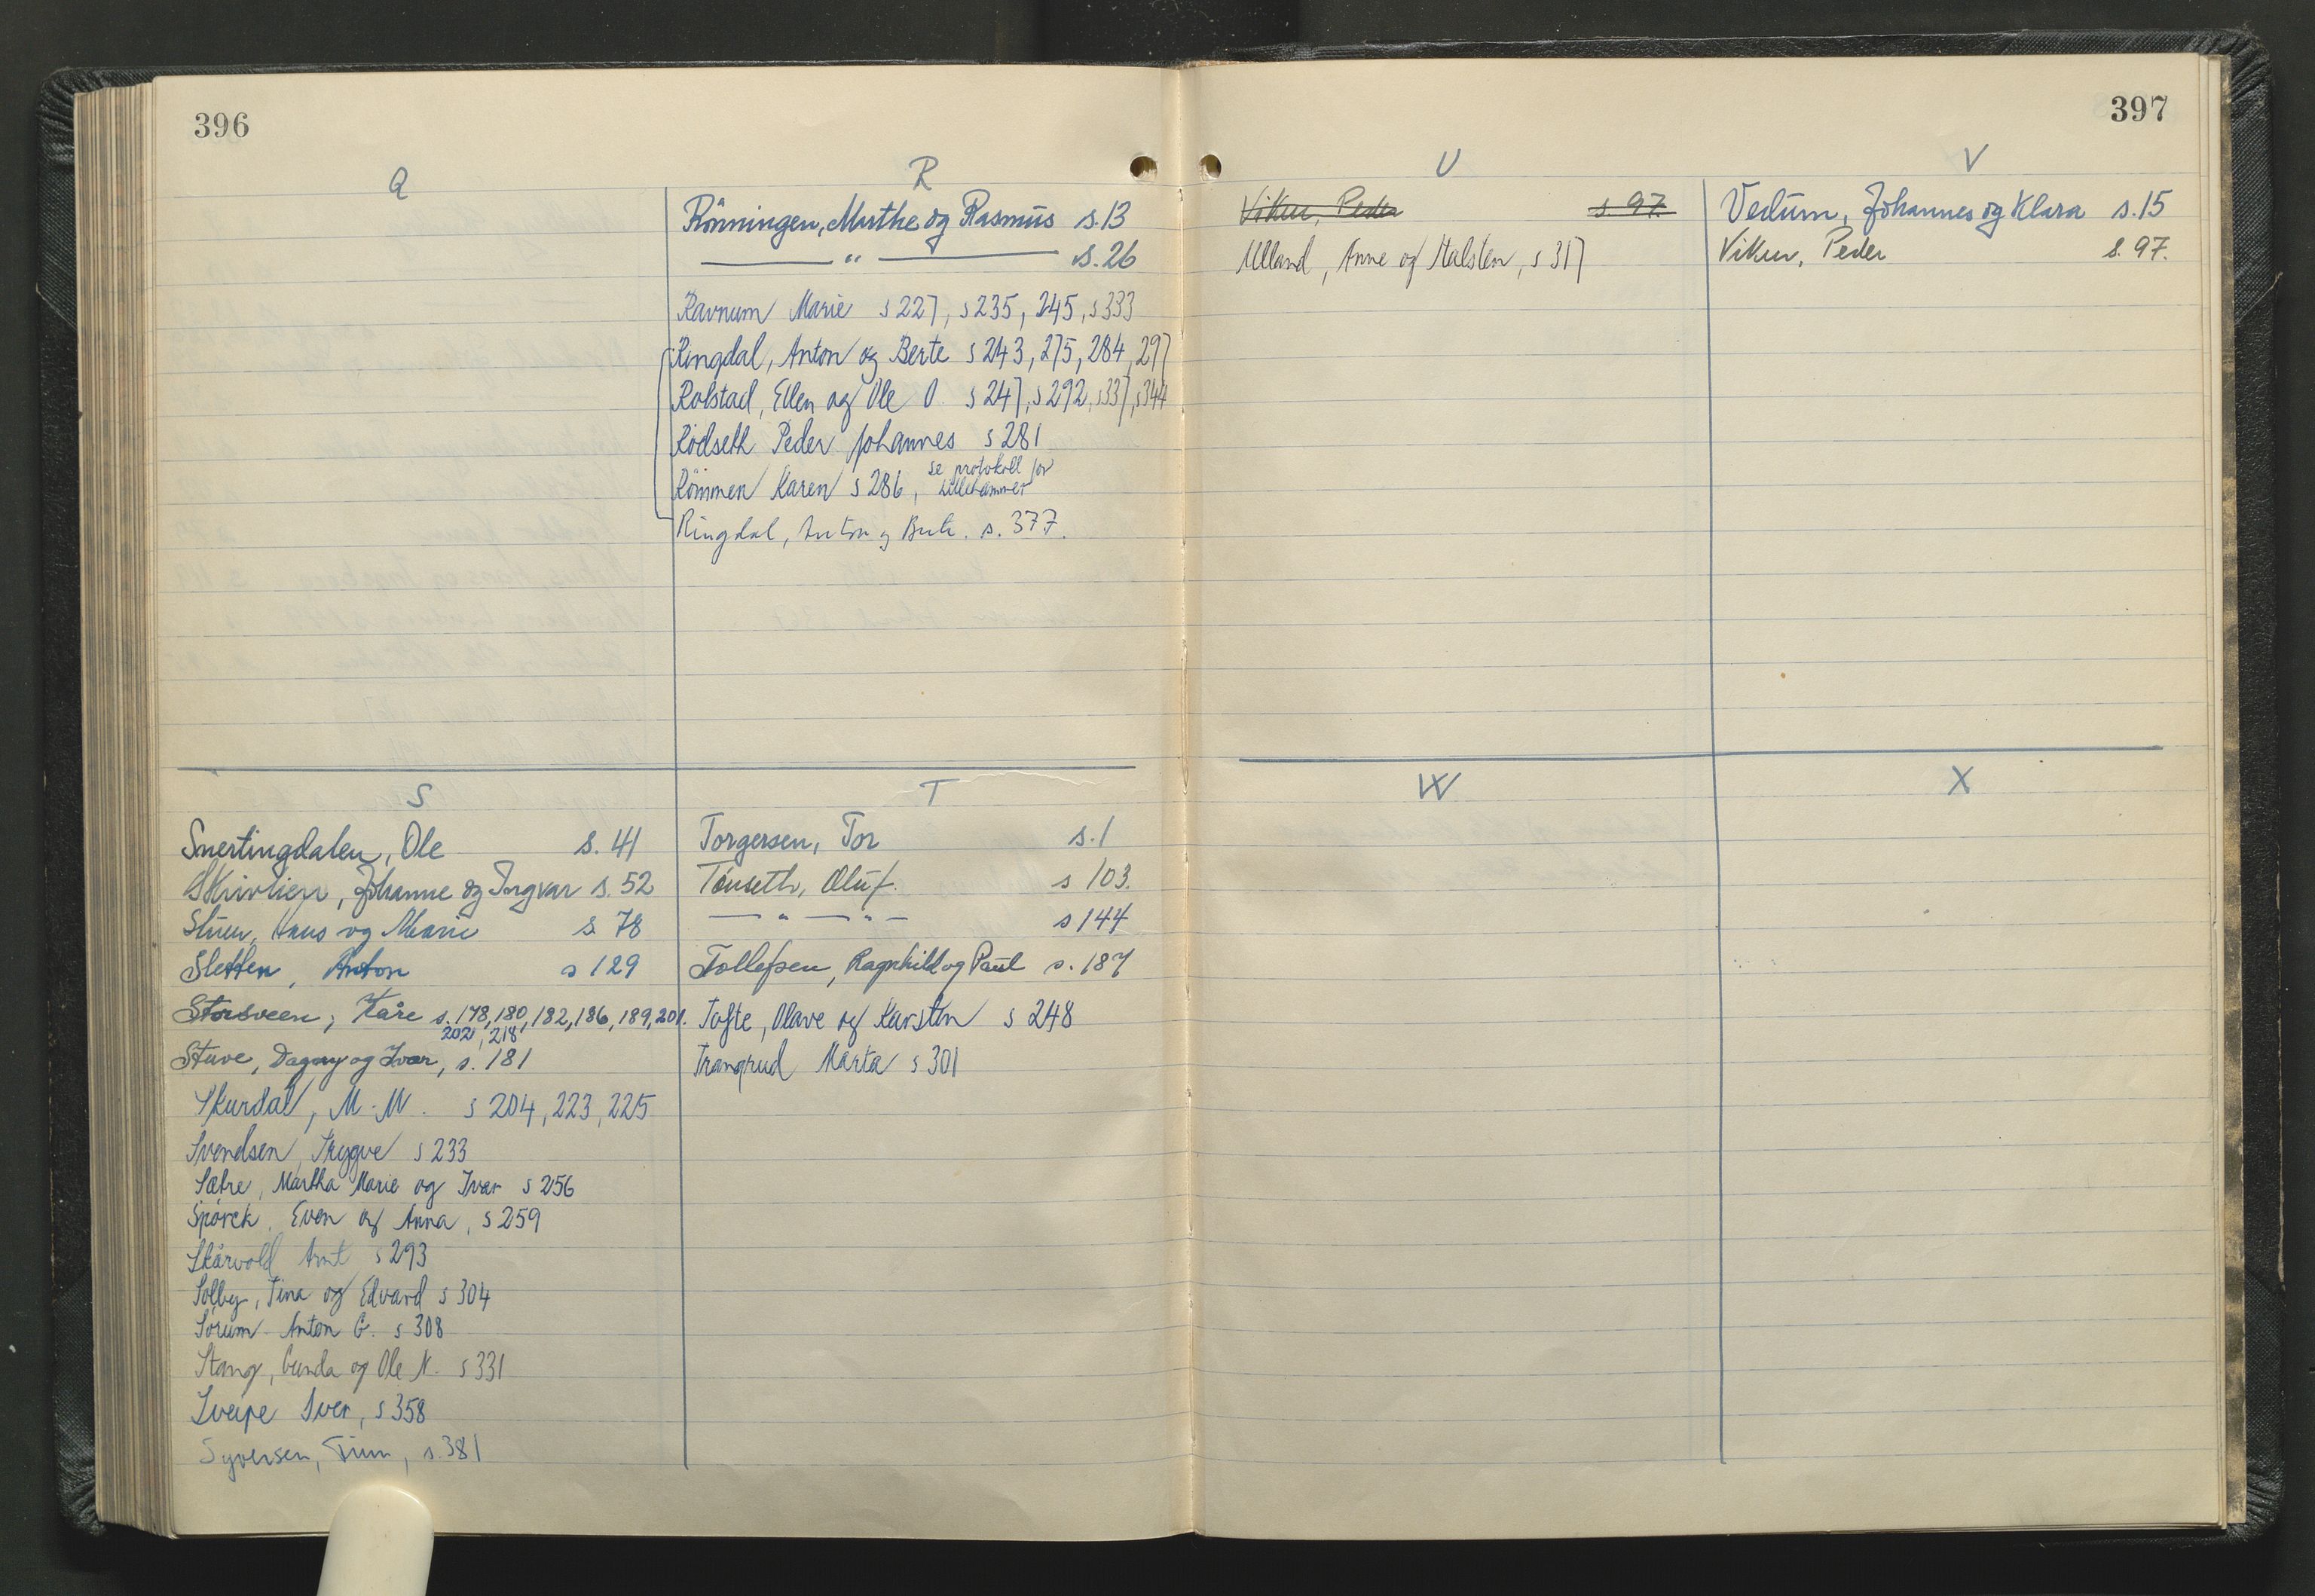 396
Q
R
Rönningen, Marthe og Rasmus s. 13
— " — s. 26
Ravnum Marie s 227, s 235, 245, s 333
Ringdal, Anton og Berte s 243, 275, 284, 297
Rolstad, Ellen og Ole O. s 247, s 292, s 337, s 344
Rödseth Peder Johannes s 281
Römmen Karen s 286, se protokoll for
Lillehammer
Ringdal, Anton og Berte. s. 377.
S
Snertingdalen, Ole s. 41
Skivlien, Johanne og Ingvar s. 52
Stuen, Hans og Marie s. 78
Sletten, Anton s 129
Storsveen, Kåre s. 178, 180, 182, 186, 189, 201.
202, 218
Stuve, Dagny og Ivar, s. 181
Skurdal, M. M. s 204, 223, 225
Svendsen, Trygve s 233
Sætre, Martha Marie og Ivar s 256
Spörck, Even og Anna, s 259
Skårvold Arnt s 293
Solby, Tina og Edvard s 304
Sörum Anton G. s 308
Stang, Gunda og Ole N. s 331
Sveipe Iver, s 358
Syversen, Finn, s. 381
T
Torgersen, Tor s. 1
Tönseth, Oluf. s 103.
— " — " — s 144
Tollefsen, Ragnhild og Paul s. 187
Tofte, Olave og Karsten s 248
Trangrud Marta s 301
397
U
Viken, Peder s 97.
Ulland, Anne og Halsten, s 317
V
Vedum, Johannes og Klara s. 15
Viken, Peder s. 97.
W
X